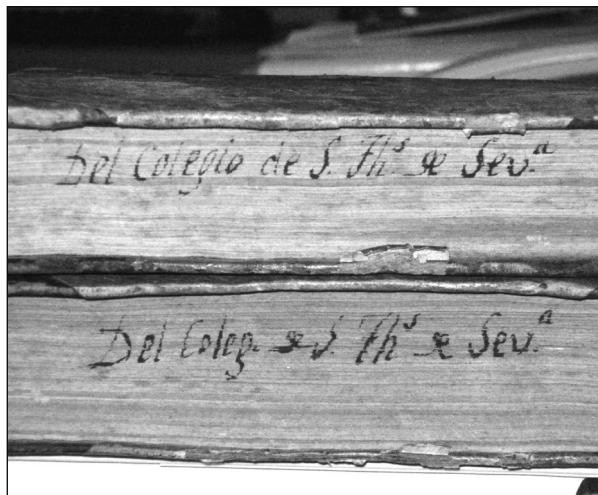 Del Colegio de S. Thˢ. de Sev.ª
Del Coleg. de S. Thˢ de Sev.ª